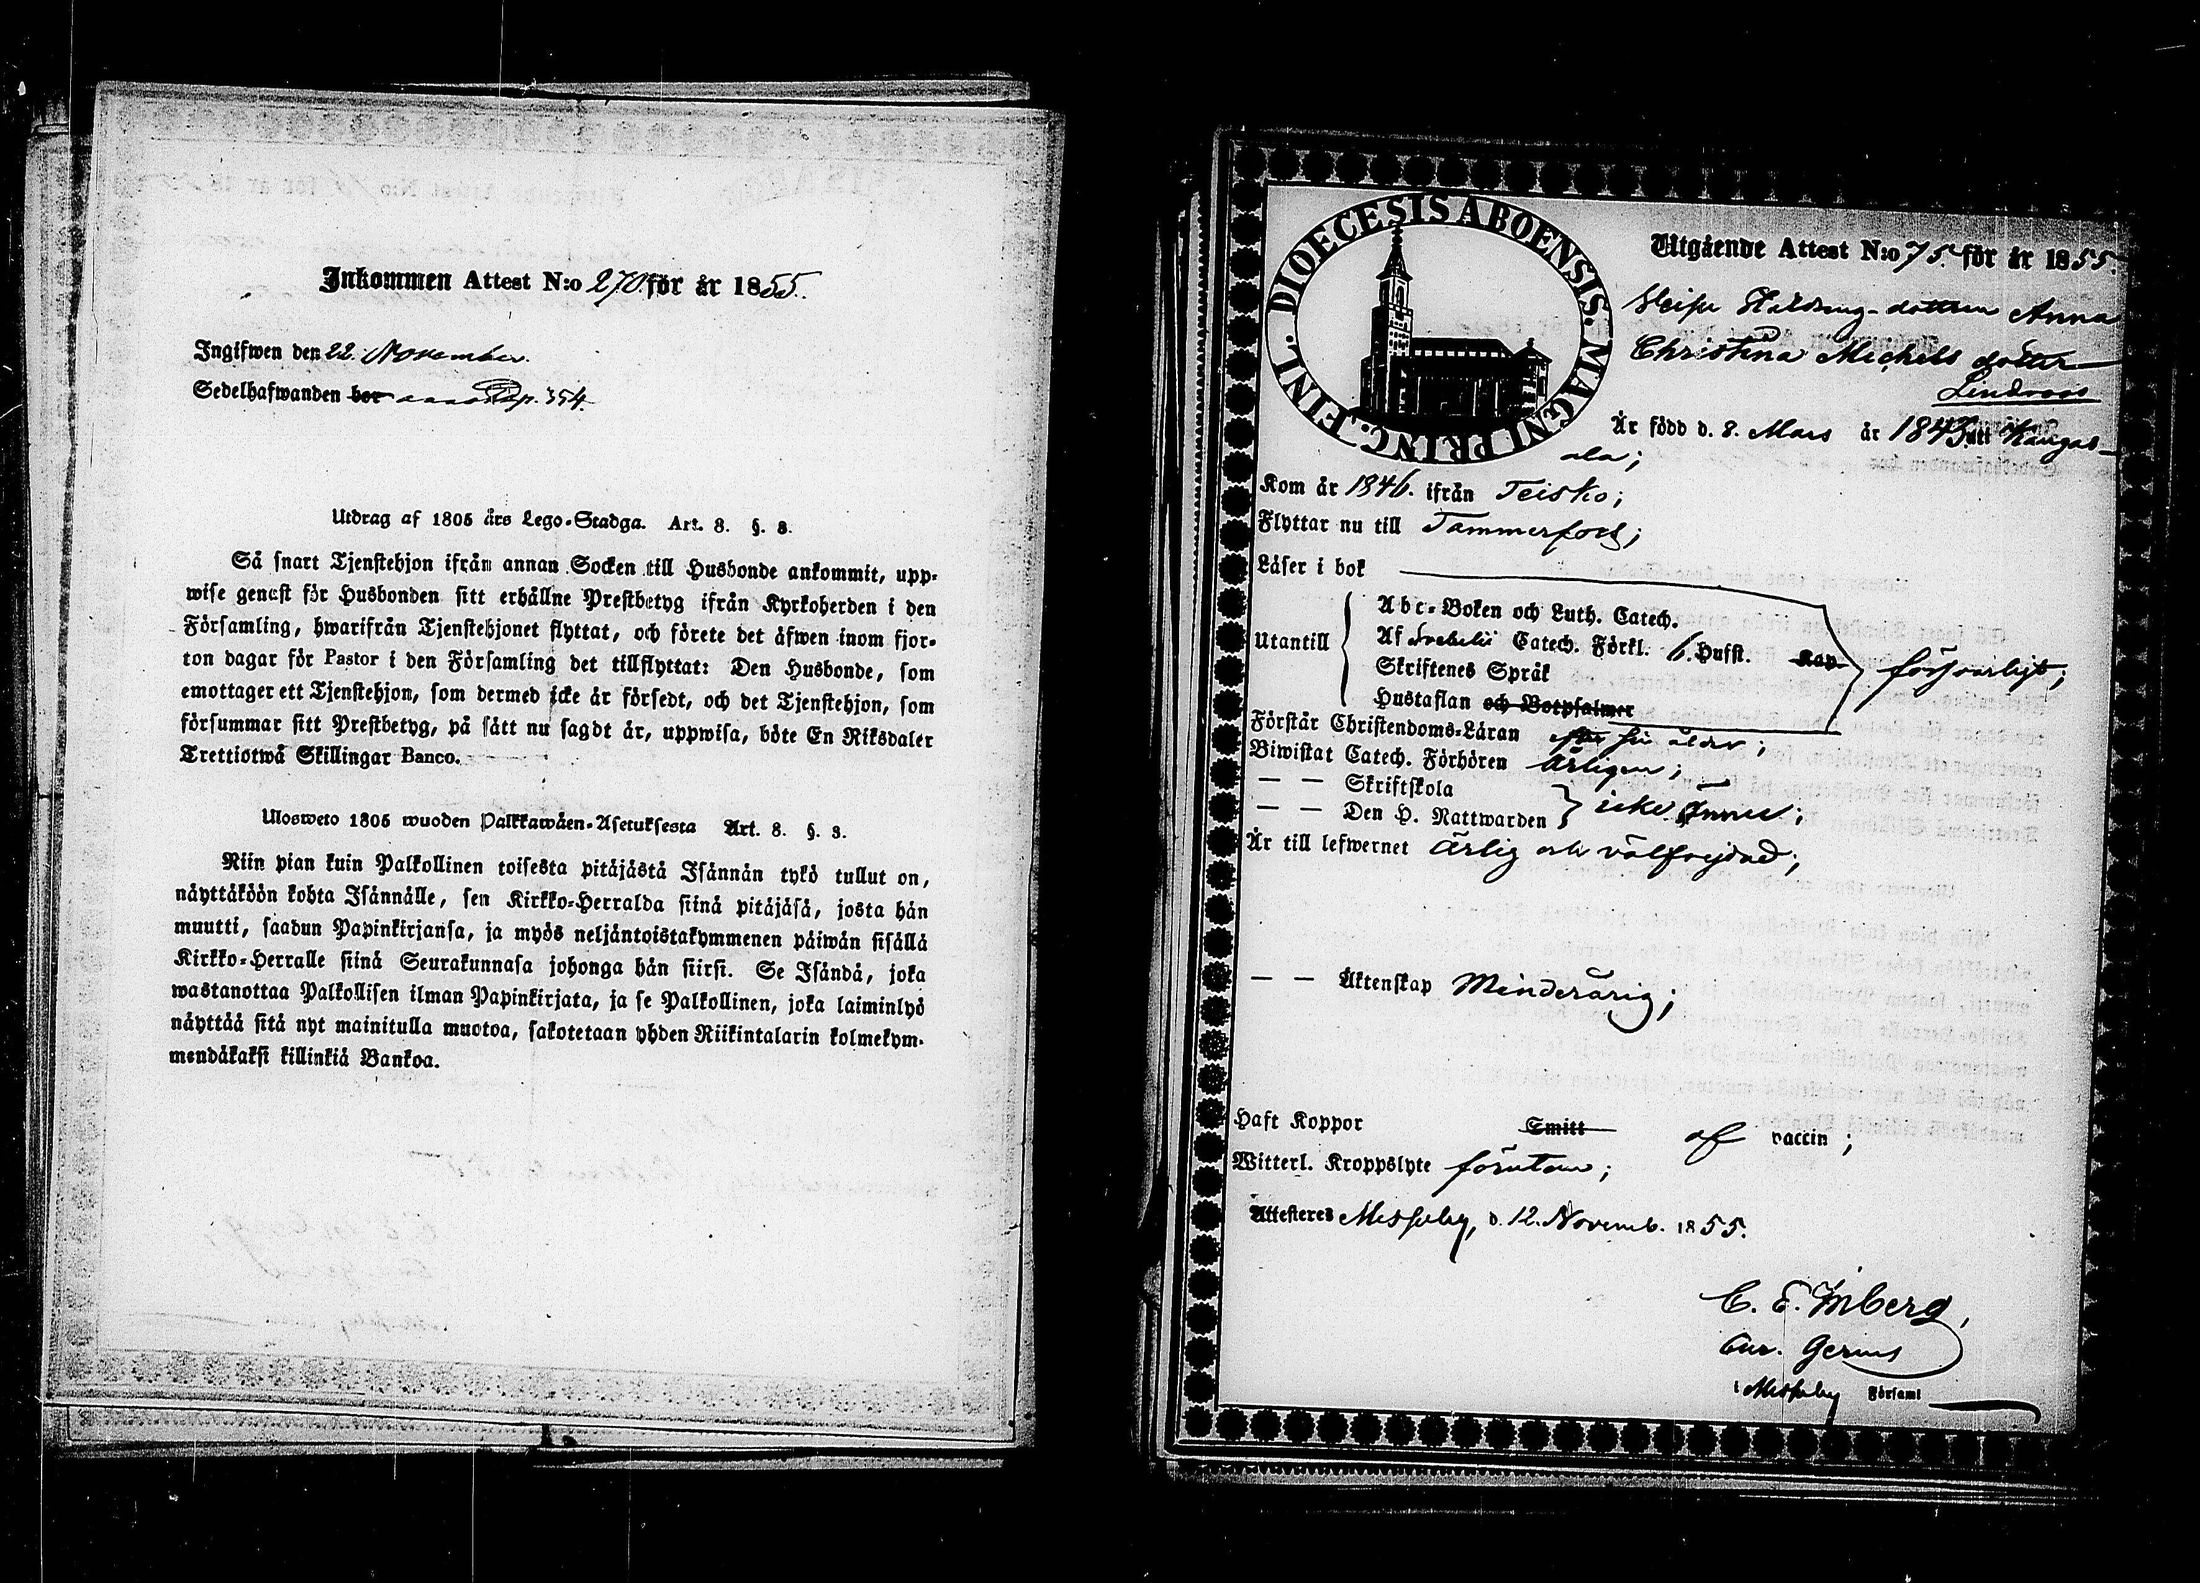 Inkommen Attest N:o 270 för år 1855.
Ingifwen den 22. November.
Sedelhafwanden bor p. 354.
Utdrag af 1805 års Lego-Stadga. Art. 8. §. 3.
Så snart Tjenstehjon ifrån annan Socken till Husbonde ankommit, upp-
wise genast för Husbonden sitt erhållne Prestbetyg ifrån Kyrkoherden i den
Församling, hwarifrån Tjenstehjonet flyttat, och förete det äfwen inom fjor-
ton dagar för Pastor i den Församling det tillflyttat: Den Husbonde, som
emottager ett Tjenstehjon, som dermed icke är försedt, och det Tjenstehjon, som
försummar sitt Prestbetyg, på sätt nu sagdt är, uppwisa, böte En Riksdaler
Trettiotwå Skillingar Banco.
Ulosweto 1805 wuoden Palkkawäen-Asetuksesta Art. 8. §. 3.
Niin pian kuin Palkollinen toisesta pitäjästä Isännän tykö tullut on,
näyttäköön kohta Isännälle, sen Kirkko-Herralda siinä pitäjäsä, josta hän
muutti, saadun Papinkirjansa, ja myös neljäntoistakymmenen päiwän sisällä
Kirkko-Herralle siinä Seurakunnasa johonga hän siirsi. Se Isändä, joka
wastanottaa Palkollisen ilman Papinkirjata, ja se Palkollinen, joka laiminlyö
näyttää sitä nyt mainitulla muotoa, sakotetaan yhden Riikintalarin kolmekym-
mendäkaksi killinkiä Bankoa.
DIOECESIS ABOENSIS. MAGNI PRINC. FINL.
Utgående Attest N:o 75. för år 1855.
dottren Anna
Christina Michels dotter
Lindroos
Är född d. 8. Mars år 1843 uti Kangas-
ala;
Kom år 1846. ifrån Teisko;
Flyttar nu till Tammerfors;
Läser i bok
Utantill
Abc-Boken och Luth. Catech.
Af Svebelii Catech. Förkl. 6. Hufst. Kap.
Skriftenes Språk
Hustaflan och Botpsalmer
försvarligt;
Förstår Christendoms-Läran efter sin ålder;
Biwistat Catech. Förhören Årligen;
— — Skriftskola
— — Den H. Nattwarden
icke ännu;
Är till lefwernet ärlig och välfrejdad;
— — Äktenskap Minderårig;
Haft Koppor Smitt af vaccin;
Witterl. Kroppslyte förutan;
Attesteres Messuby, d. 12. Novemb. 1855.
C. E. Inberg,
Cur. Gerens
i Messuby Församl